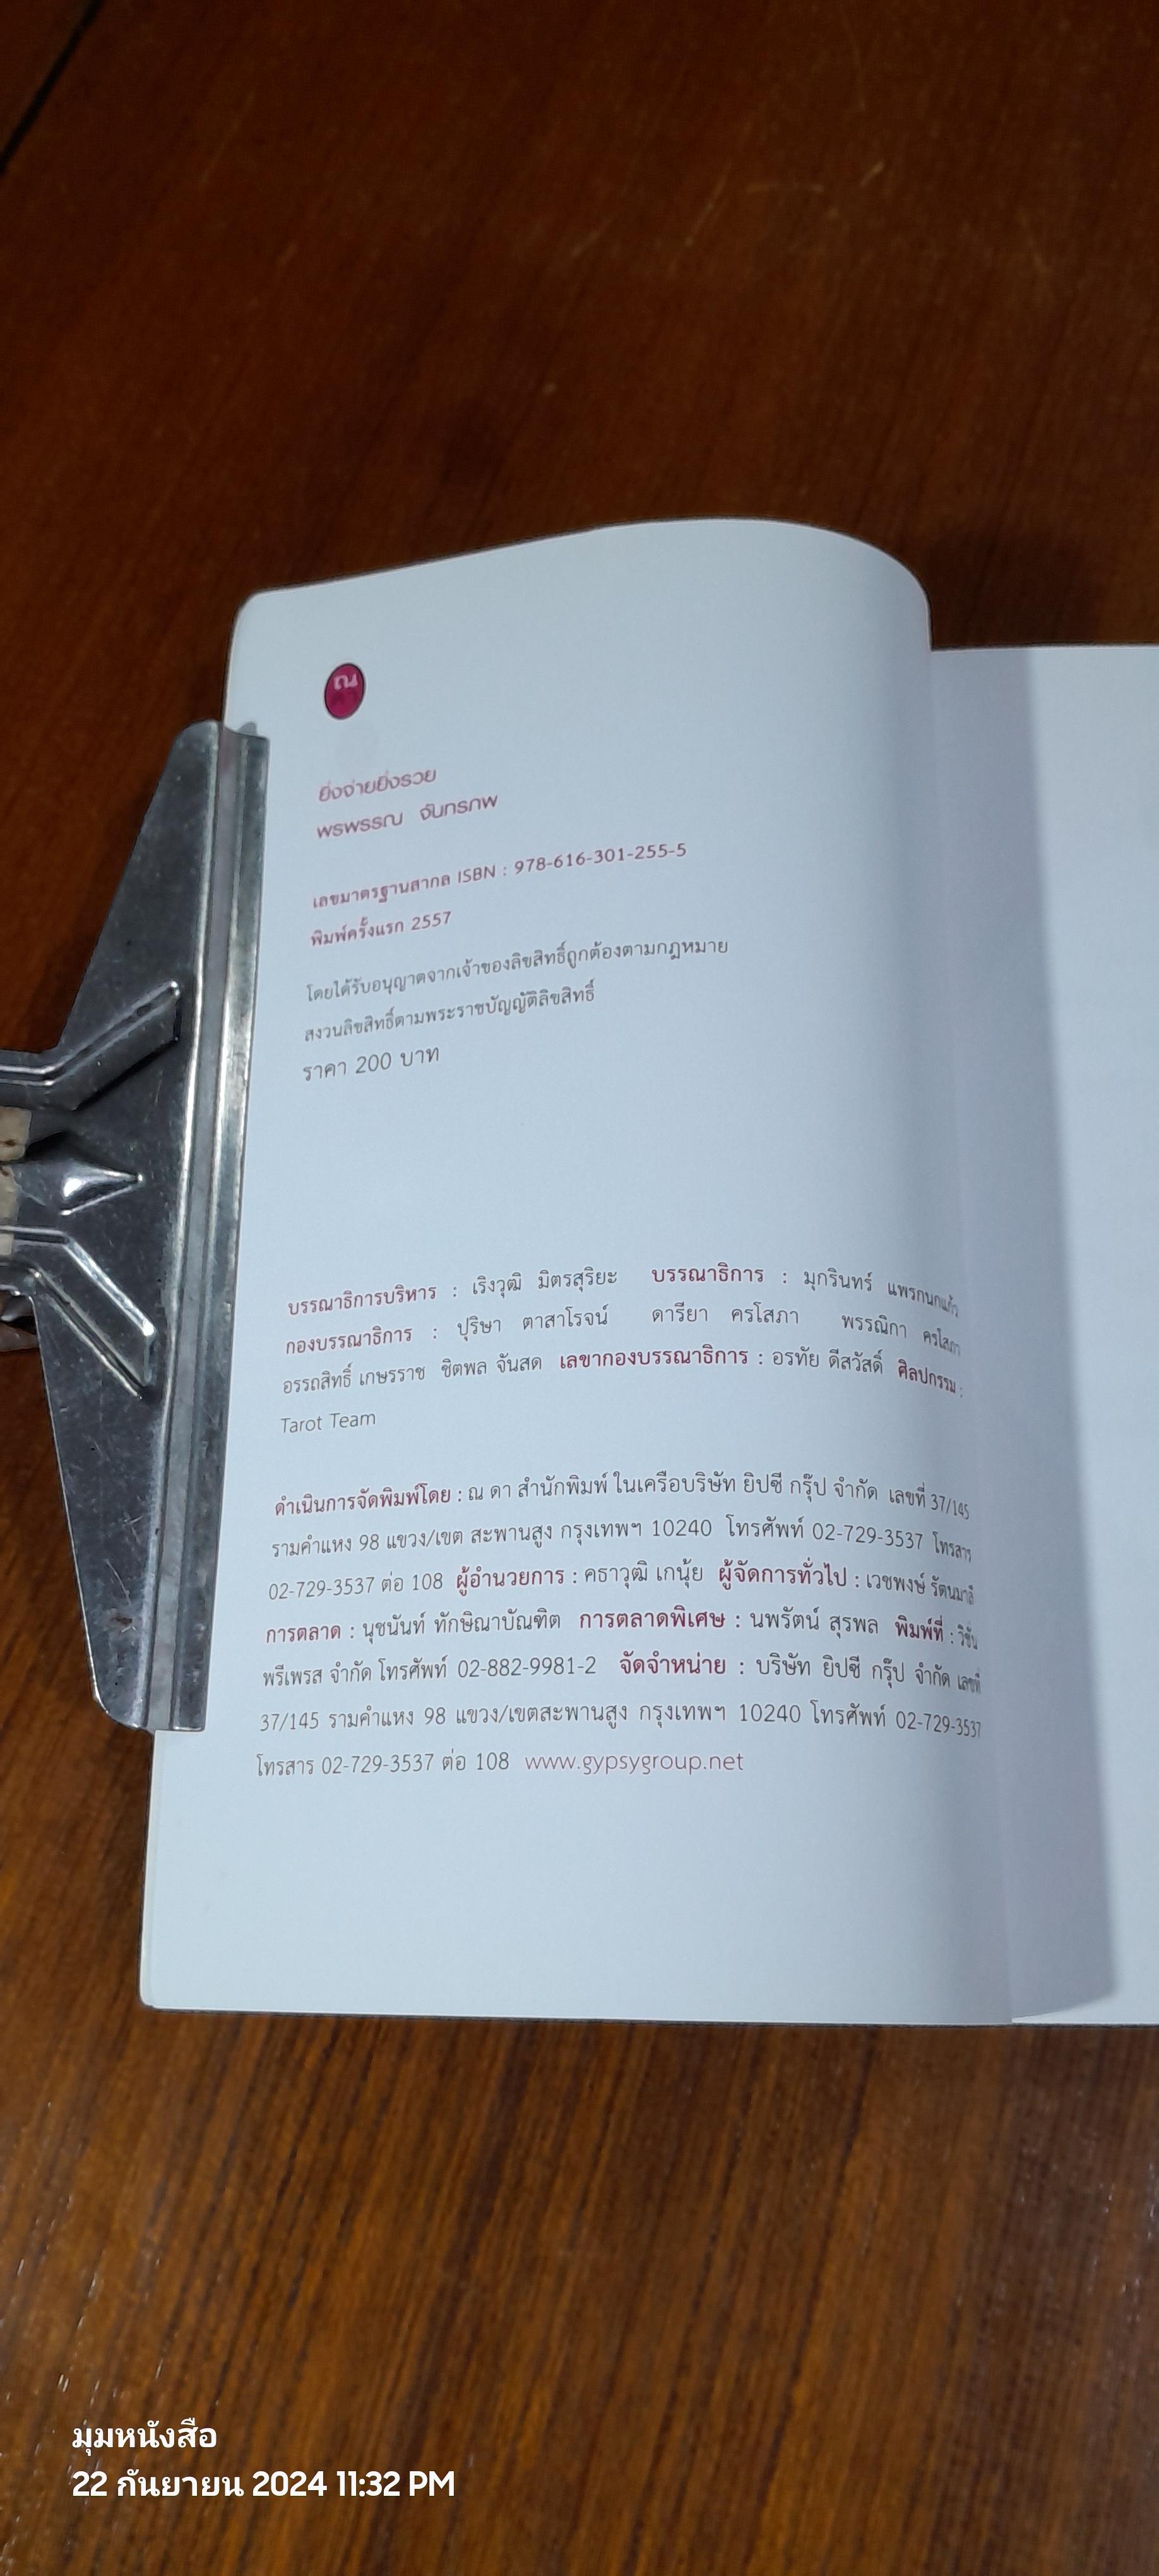 ณ
ยิ่งจ่ายยิ่งรวย
พรพรรณ จันทรภพ
เลขมาตรฐานสากล ISBN : 978-616-301-255-5
พิมพ์ครั้งแรก 2557
โดยได้รับอนุญาตจากเจ้าของลิขสิทธิ์ถูกต้องตามกฎหมาย
สงวนลิขสิทธิ์ตามพระราชบัญญัติลิขสิทธิ์
ราคา 200 บาท
บรรณาธิการบริหาร : เริงวุฒิ มิตรสุริยะ บรรณาธิการ : มุกรินทร์ แพรกนกแก้ว
กองบรรณาธิการ : ปุริษา ตาสาโรจน์ ดารียา ครโสภา พรรณิกา ครโสภา
อรรถสิทธิ์ เกษรราช ชิตพล จันสด เลขากองบรรณาธิการ : อรทัย ดีสวัสดิ์ ศิลปกรรม :
Tarot Team
ดำเนินการจัดพิมพ์โดย : ณ ดา สำนักพิมพ์ ในเครือบริษัท ยิปซี กรุ๊ป จำกัด เลขที่ 37/145
รามคำแหง 98 แขวง/เขต สะพานสูง กรุงเทพฯ 10240 โทรศัพท์ 02-729-3537 โทรสาร
02-729-3537 ต่อ 108 ผู้อำนวยการ : คธาวุฒิ เกนุ้ย ผู้จัดการทั่วไป : เวชพงษ์ รัตนมาลี
การตลาด : นุชนันท์ ทักษิณาบัณฑิต การตลาดพิเศษ : นพรัตน์ สุรพล พิมพ์ที่ : วิชั่น
พรีเพรส จำกัด โทรศัพท์ 02-882-9981-2 จัดจำหน่าย : บริษัท ยิปซี กรุ๊ป จำกัด เลขที่
37/145 รามคำแหง 98 แขวง/เขตสะพานสูง กรุงเทพฯ 10240 โทรศัพท์ 02-729-3537
โทรสาร 02-729-3537 ต่อ 108 www.gypsygroup.net
มุมหนังสือ
22 กันยายน 2024 11:32 PM